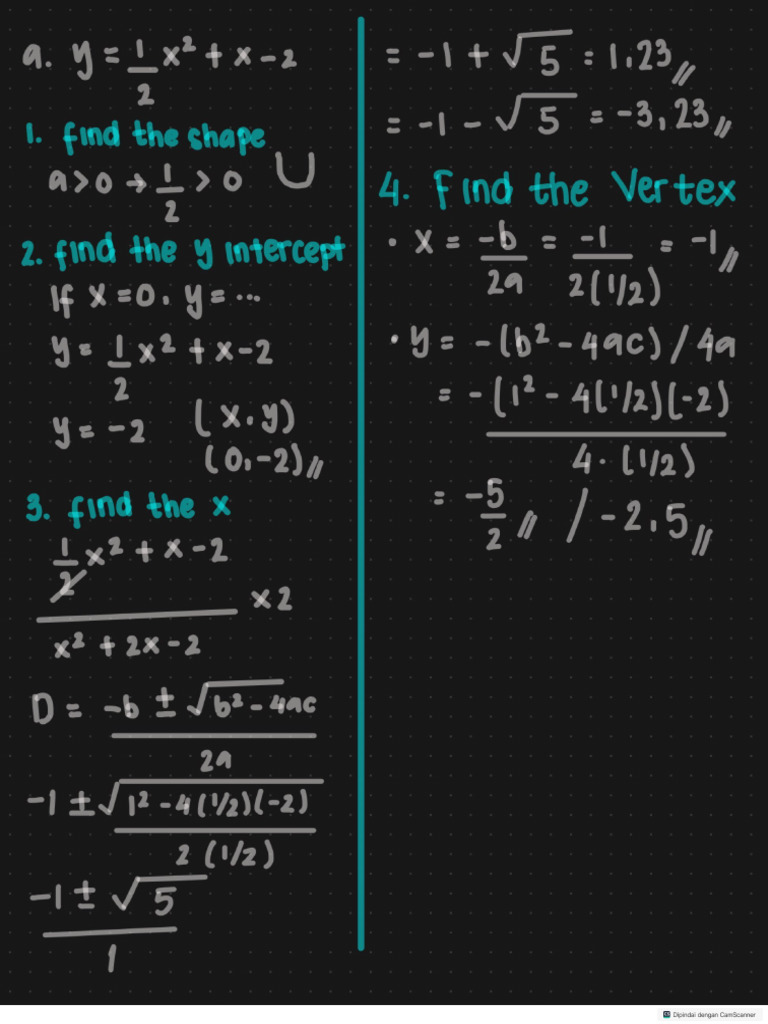 a. y = 1/2 x² + x - 2
1. find the shape
a > 0 → 1/2 > 0 ∪
2. find the y intercept
If x = 0, y = ...
y = 1/2 x² + x - 2
y = -2 (x, y)
(0, -2)//
3. find the x
1/2 x² + x - 2
x2
x² + 2x - 2
D = -b ± √b² - 4ac
2a
-1 ± √1² - 4(1/2)(-2)
2 (1/2)
-1 ± √5
1
= -1 + √5 = 1,23//
= -1 - √5 = -3,23//
4. Find the Vertex
• x = -b/2a = -1/2(1/2) = -1//
• y = -(b² - 4ac) / 4a
= -(1² - 4(1/2)(-2)
4 · (1/2)
= -5/2 // / -2,5//
Dipindai dengan CamScanner